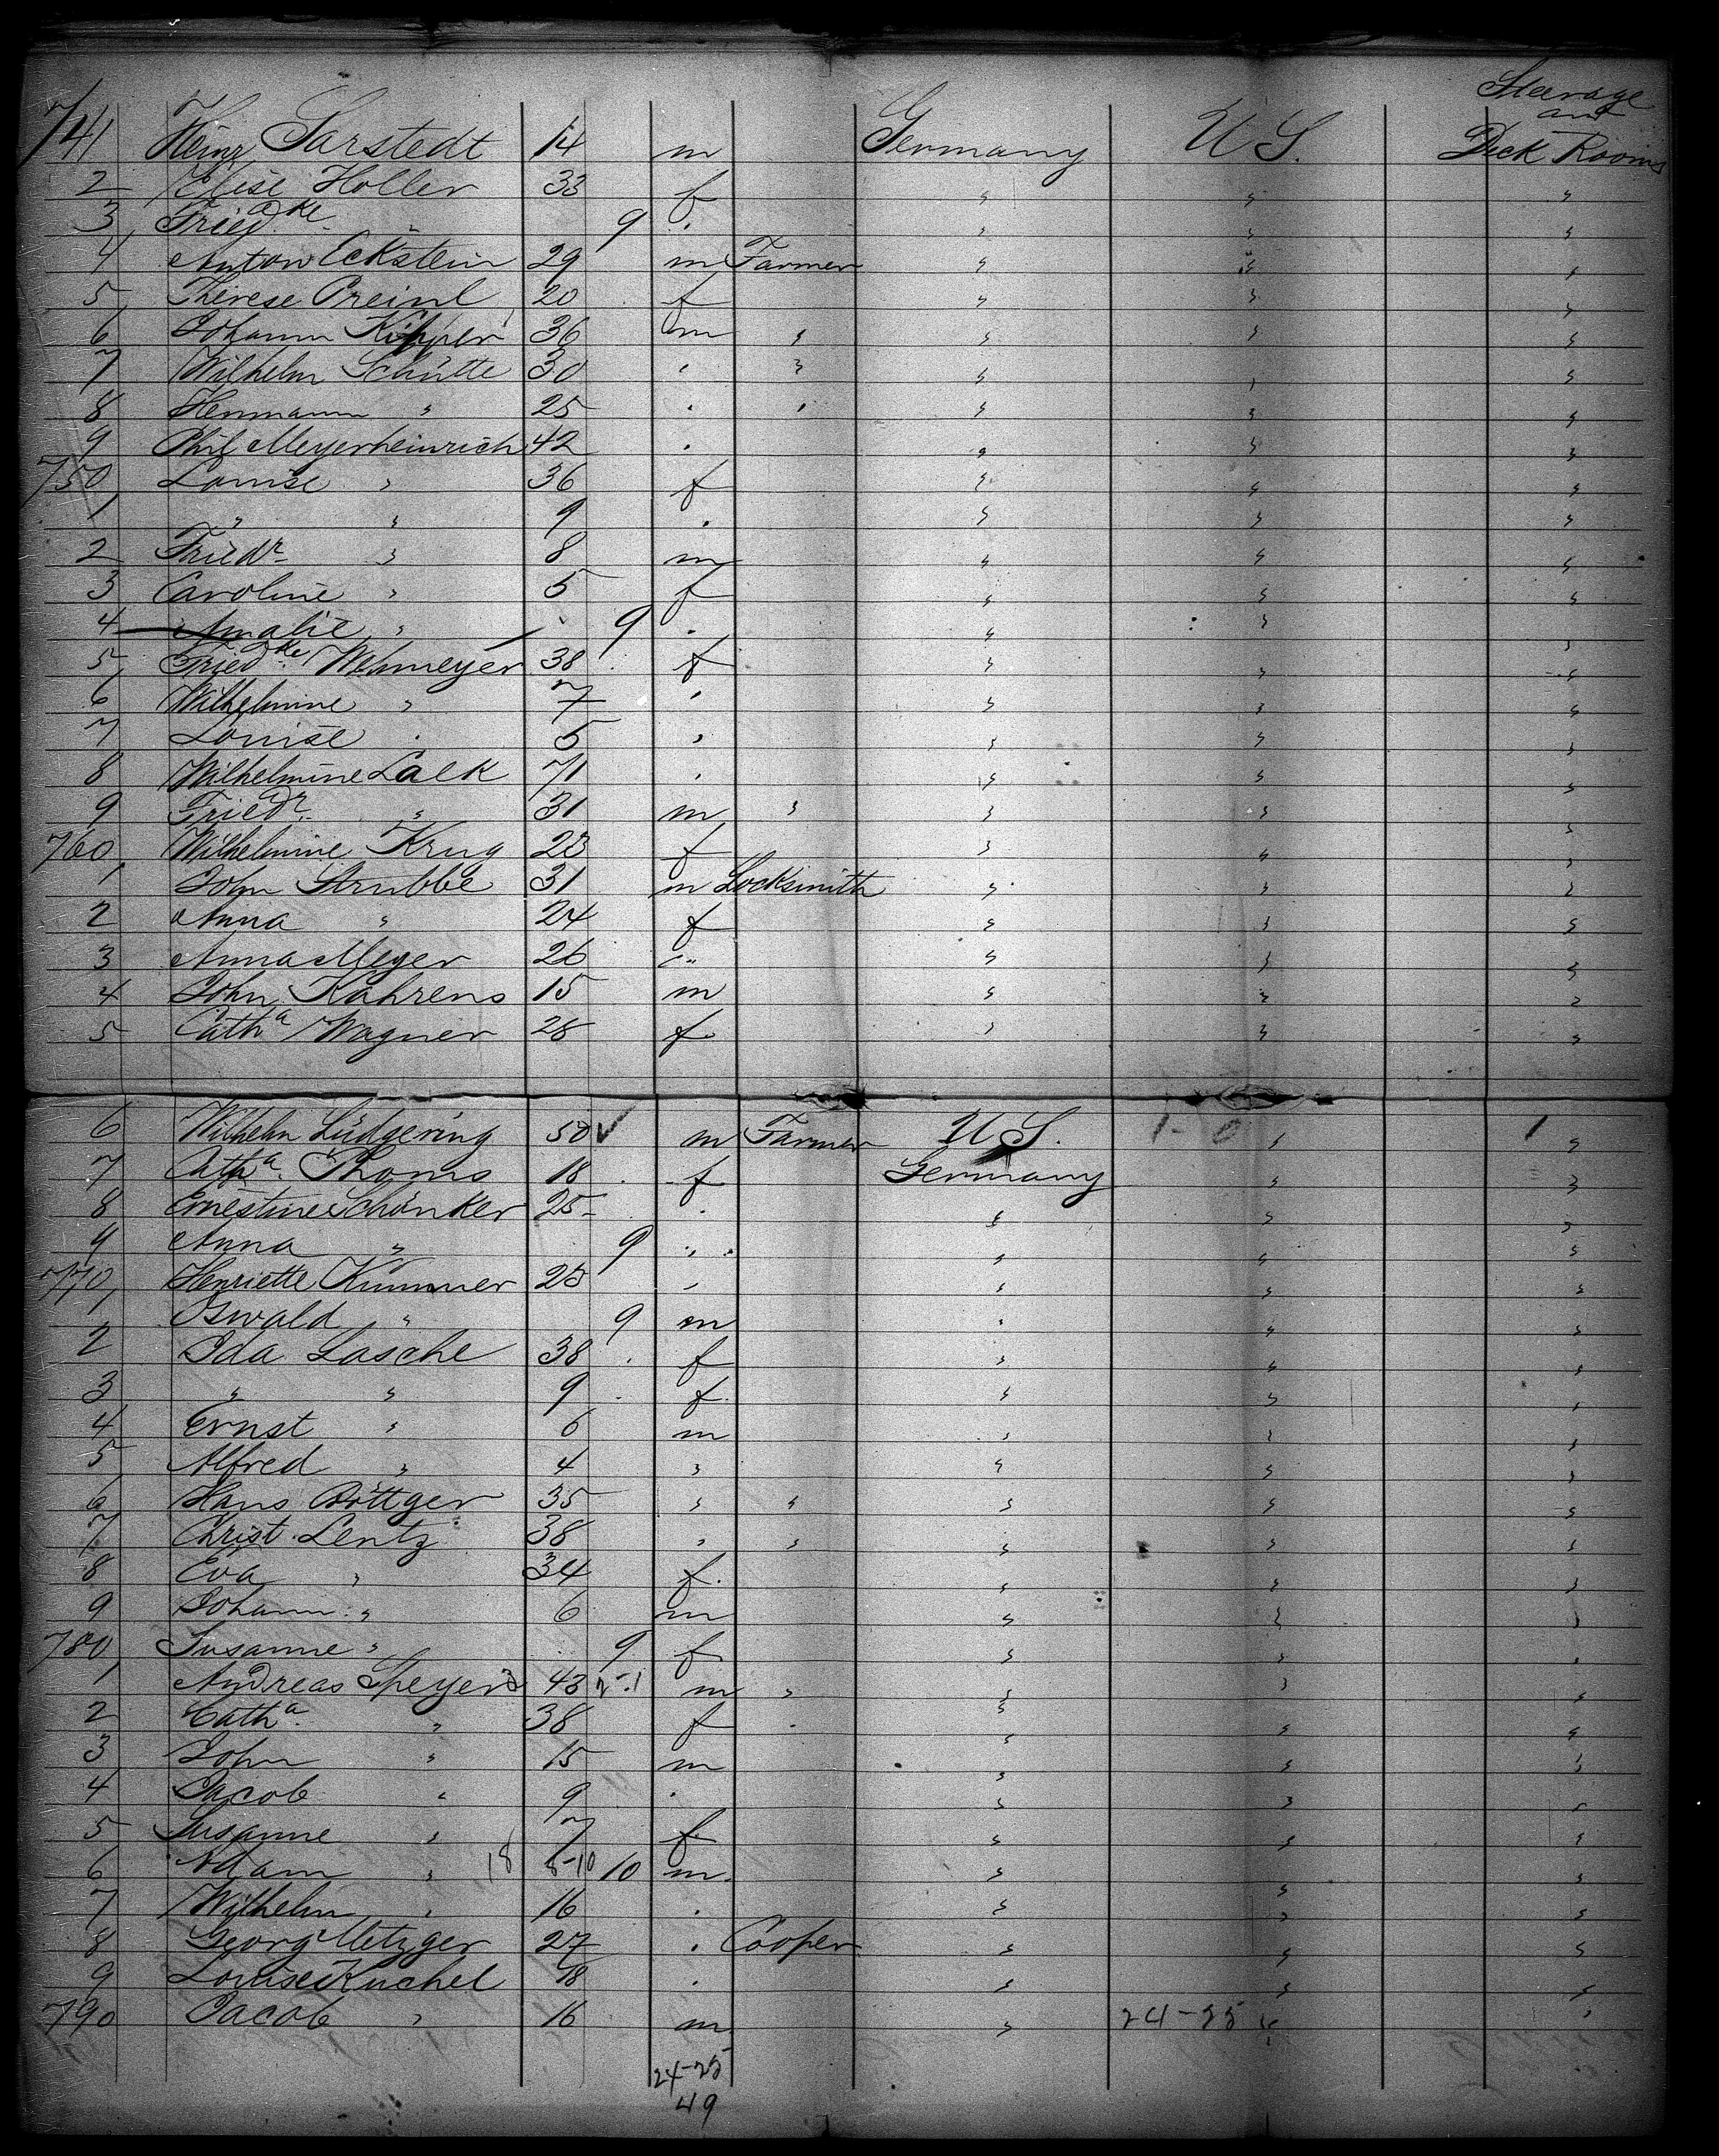 Steerage
and
741 Heinr Sarstedt 14 m Germany U S. Deck Rooms
2 Elise Holler 33 f " " "
3 Friedke " 9 " " " "
4 Anton Eckstein 29 m Farmer " " "
5 Therese Preinl 20 f " " "
6 Johann Kipper 36 m " " " "
7 Wilhelm Schütte 30 " " " " "
8 Hermann " 25 " " " " "
9 Phil Meyerheinrich 42 " " " "
750 Louise " 36 f " " "
1 " " 9 " " " "
2 Friedr " 8 m " " "
3 Caroline " 5 f " " "
4 Amalie " 9 " " " "
5 Friedke Wehmeyer 38 f " " "
6 Wilhelmine " 7 " " " "
7 Louise " 5 " " " "
8 Wilhelmine Lalk 71 " " " "
9 Friedr " 31 m " " " "
760 Wilhelmine Krug 23 f " " "
1 John Strubbe 31 m Locksmith " " "
2 Anna " 24 f " " "
3 Anna Meyer 26 " " " "
4 John Kahrens 15 m " " "
5 Catha Wagner 28 f " " "
6 Wilhelm Lüdgering 50 m Farmer U S. 1-0 " 1 "
7 Catha Thoms 18 f Germany " "
8 Ernestine Schönker 25 " " " "
9 Anna " 9 " " " "
770 Henriette Kummer 25 " " " "
1 Oswald " 9 m " " "
2 Ida Lasche 38 f " " "
3 " " 9 f " " "
4 Ernst " 6 m " " "
5 Alfred " 4 " " " "
6 Hans Böttger 35 " " " " "
7 Christ. Lentz 38 " " " " "
8 Eva " 34 f " " "
9 Johann " 6 m " " "
780 Susanne " 9 f " " "
1 Andreas Speyer 43 m " " " "
2 Catha " 38 f " " "
3 John " 15 m " " "
4 Jacob " 9 " " " "
5 Susanne " 7 f " " "
6 Adam " 18 8-10 10 m " " "
7 Wilhelm " 16 " " " "
8 Georg Metzger 27 " Cooper " " "
9 Louise Kuchel 18 " " " "
790 Jacob " 16 m " 24-25 " "
24-25
49